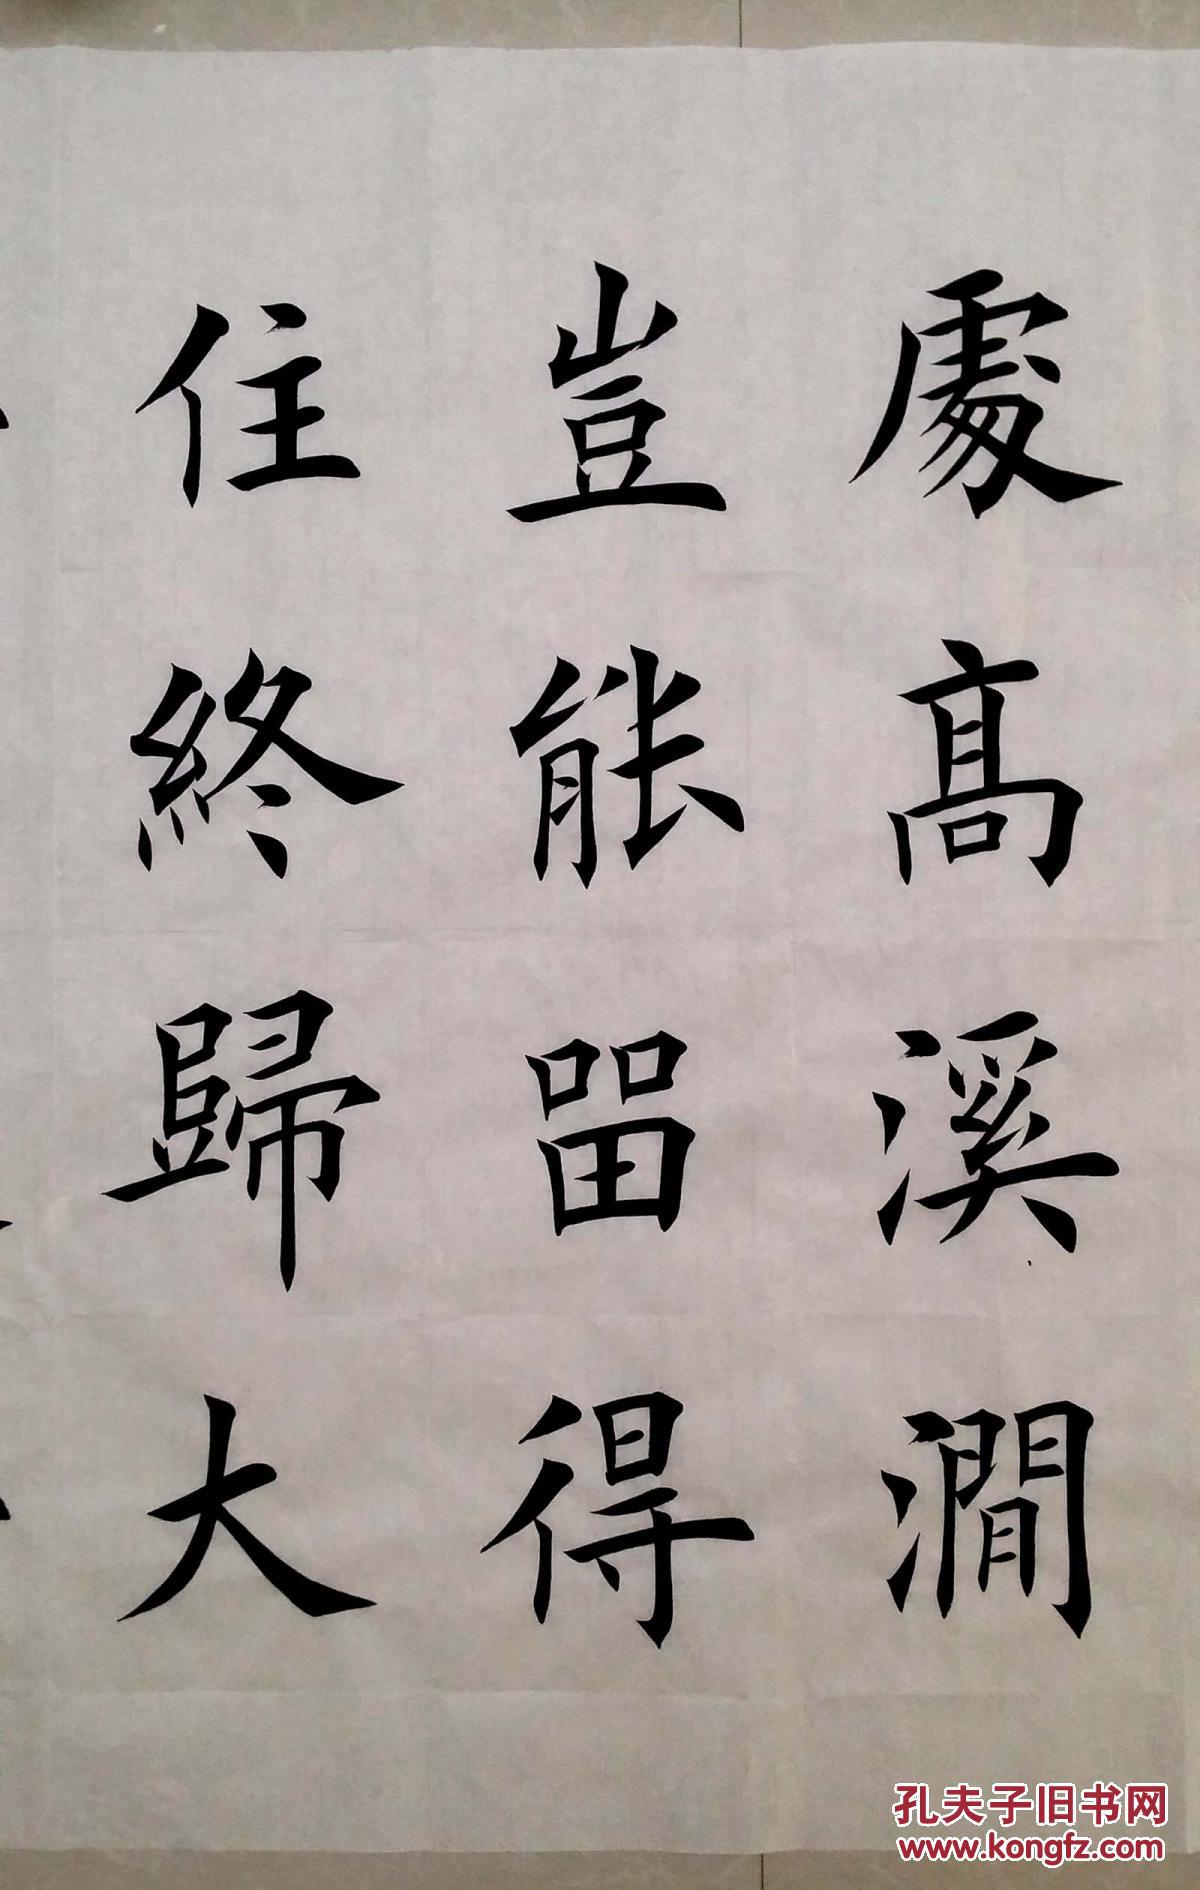 處髙溪澗
豈能畱得
住終歸大
孔夫子旧书网
www.kongfz.com